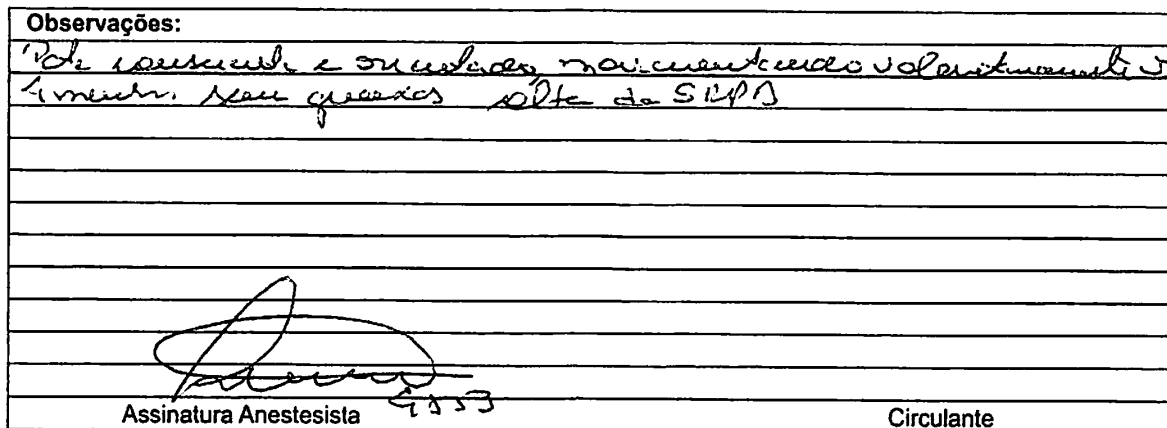 Observações:
Pcte consciente e orientado, movimentando voluntariamente
4 membr. sem queixas alta da SRPA
Assinatura Anestesista
Circulante